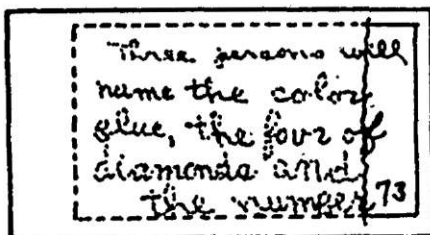 Three persons will
name the color
blue, the four of
diamonds and
the number 73